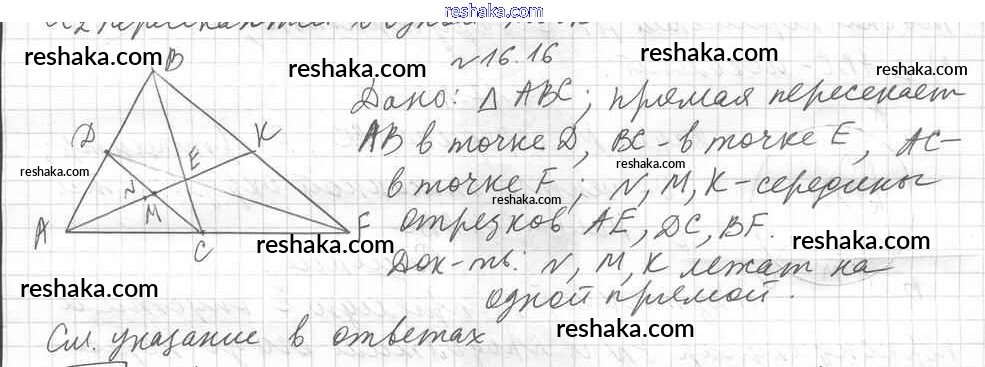 reshaka.com
пересекаются в одной точке
reshaka.com
reshaka.com
reshaka.com
№ 16.16
Дано: △ ABC; прямая пересекает
AB в точке D, BC - в точке E, AC-
в точке F; N, M, K - середины
отрезков AE, DC, BF.
Док-ть: N, M, K лежат на
одной прямой.
См. указание в ответах
B
D
K
E
N
M
A
C
F
reshaka.com
reshaka.com
reshaka.com
reshaka.com
reshaka.com
reshaka.com
reshaka.com
reshaka.com
reshaka.com
reshaka.com